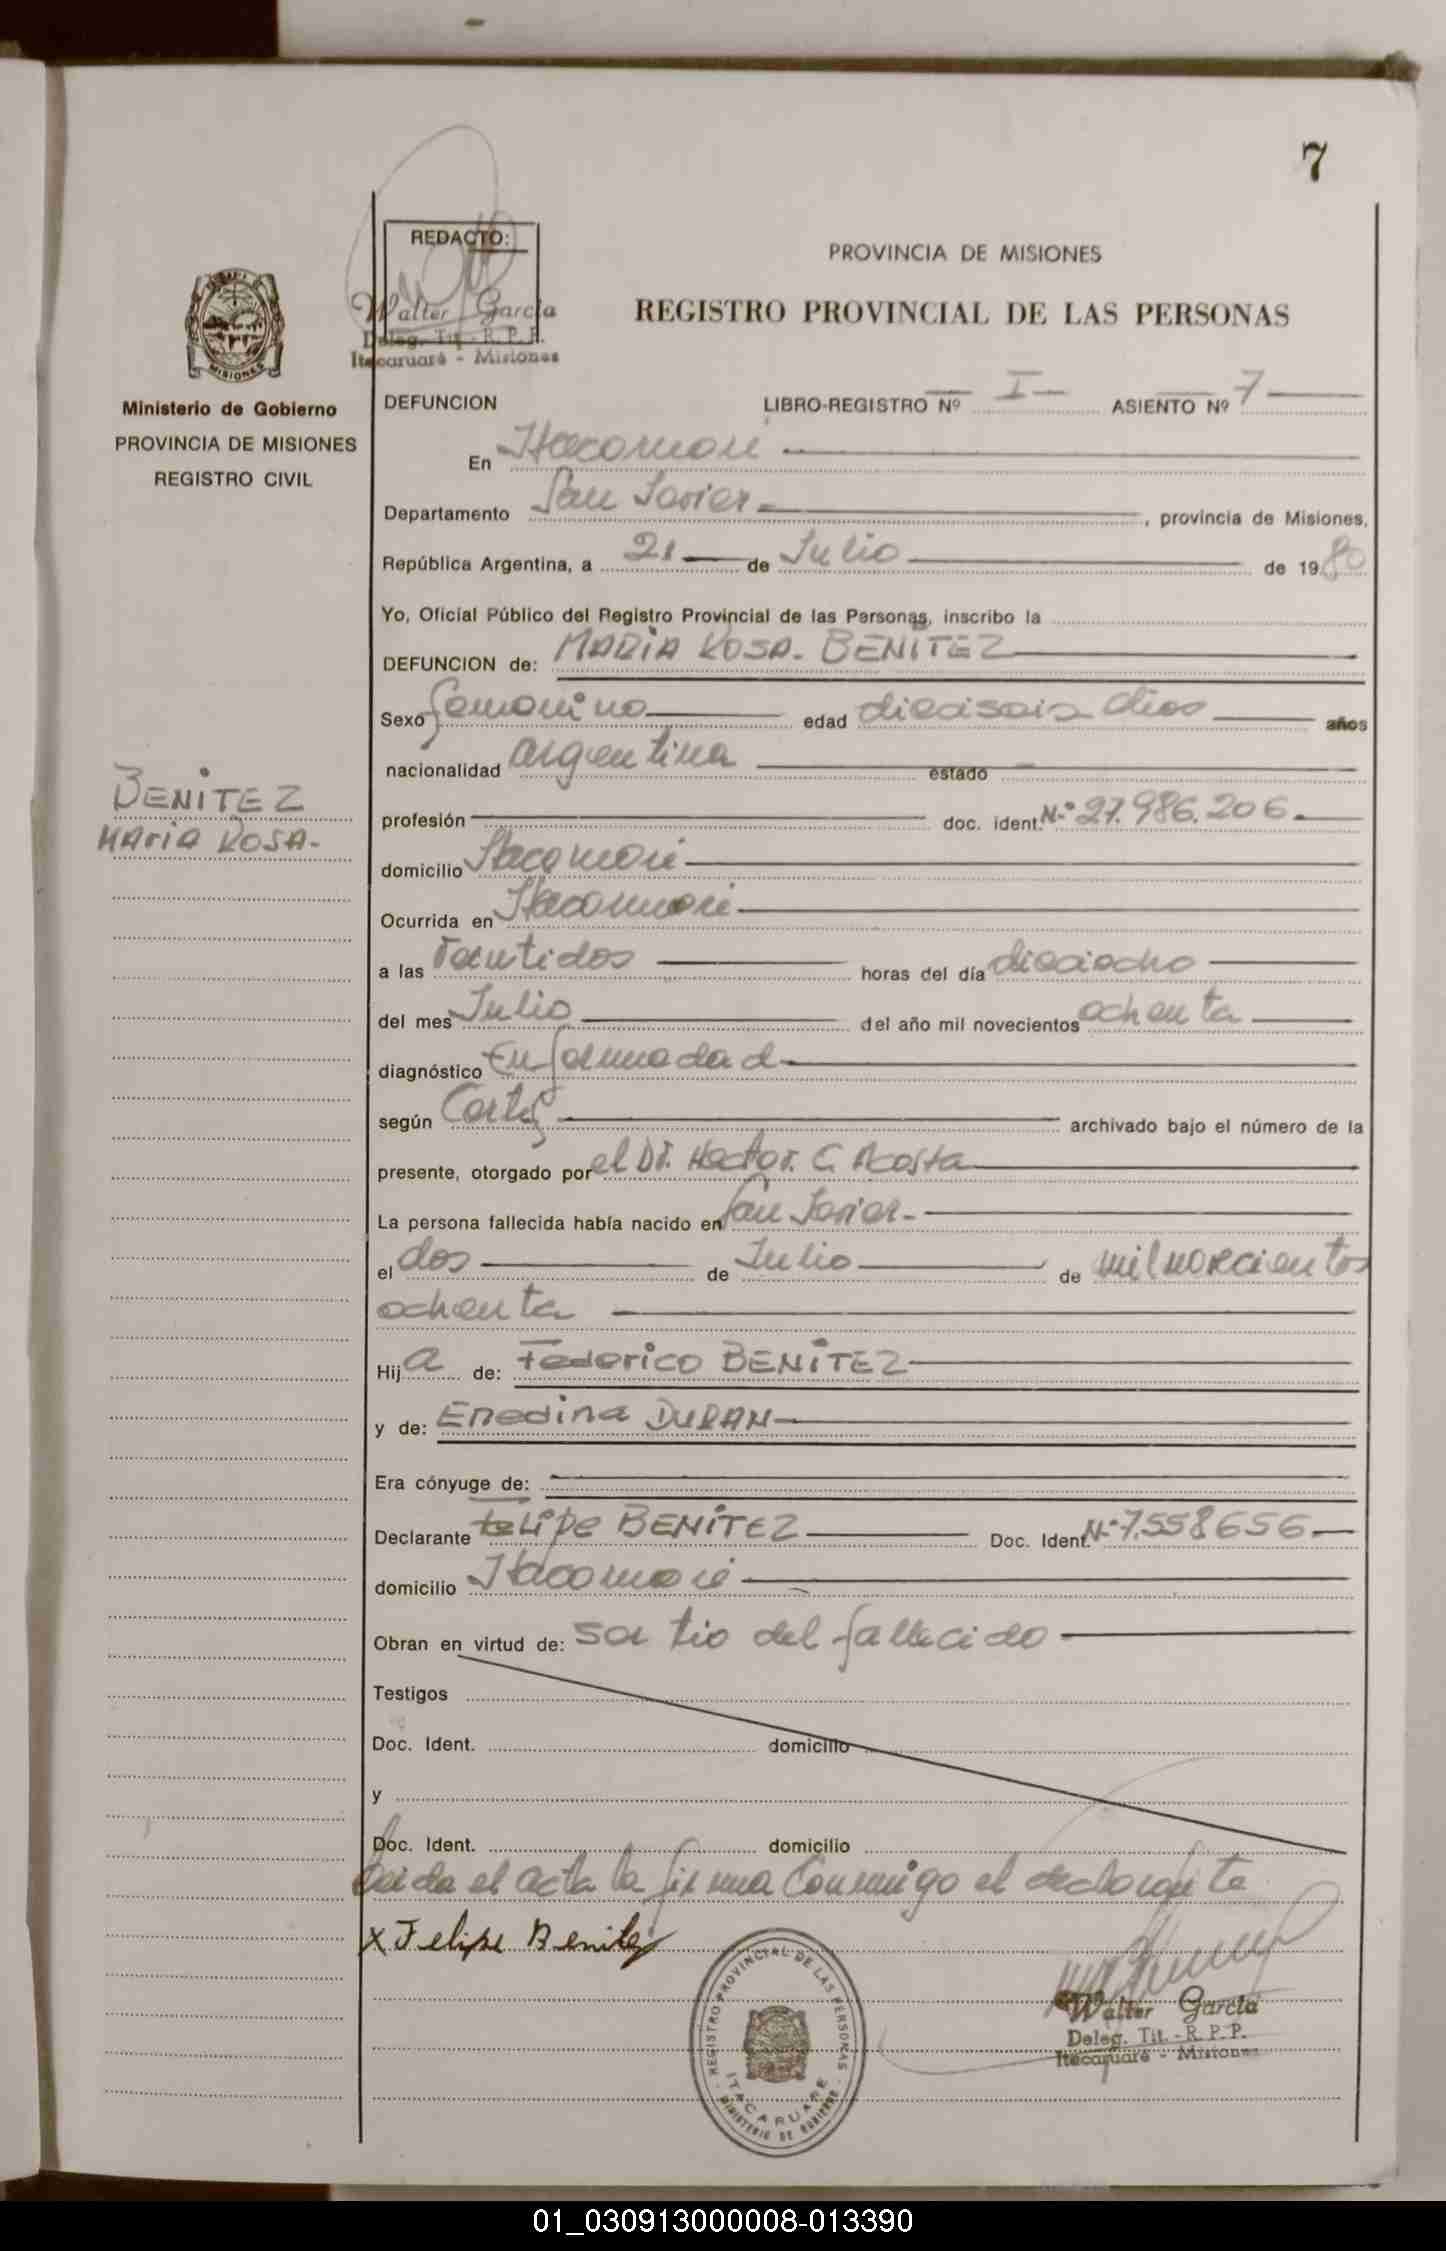 7
REDACTO:
Walter García
Deleg. Tit. - R. P. P.
Itacaruaré - Misiones
PROVINCIA DE MISIONES
REGISTRO PROVINCIAL DE LAS PERSONAS
MISIONES
Ministerio de Gobierno
PROVINCIA DE MISIONES
REGISTRO CIVIL
DEFUNCION LIBRO-REGISTRO Nº I ASIENTO Nº 7
En
Departamento San Javier , provincia de Misiones,
República Argentina, a 21 de Julio de 1980
Yo, Oficial Público del Registro Provincial de las Personas, inscribo la
DEFUNCION de: MARIA ROSA. BENITEZ
Sexo femenino edad dieciseis dias años
nacionalidad argentina estado
BENITEZ
MARIA ROSA.
profesión doc. ident. Nº 27.986.206.
domicilio
Ocurrida en
a las veintidos horas del día dieciocho
del mes Julio del año mil novecientos ochenta
diagnóstico Enfermedad
según Certf archivado bajo el número de la
presente, otorgado por el Dr. Hector. C. Acosta
La persona fallecida había nacido en San Javier.
el dos de Julio de mil novecientos
ochenta
Hija de: Federico BENITEZ
y de: Enedina DURAN
Era cónyuge de:
Declarante Felipe BENITEZ Doc. Ident. Nº 7.558656
domicilio
Obran en virtud de: ser tio del fallecido
Testigos
Doc. Ident. domicilio
y
Doc. Ident. domicilio
Leida el acta la firma conmigo el declarante
x Felipe Benitez
REGISTRO PROVINCIAL DE LAS PERSONAS
ITACARUARE
MINISTERIO DE GOBIERNO
Walter García
Deleg. Tit. - R. P. P.
Itacaruaré - Misiones
01_030913000008-013390